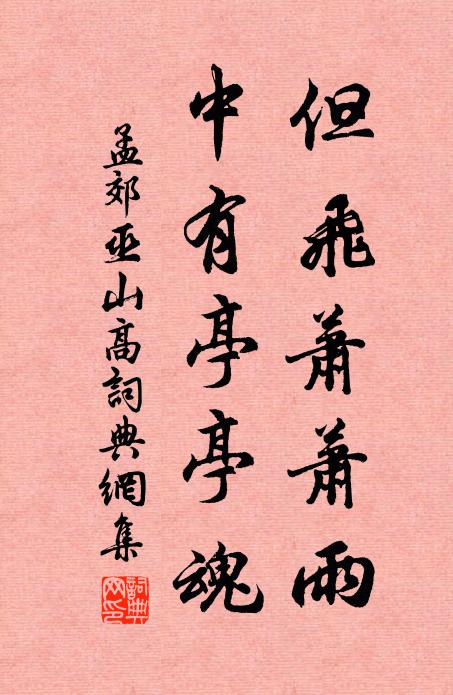 但飛蕭蕭雨
中有亭亭魂
孟郊巫山高詞典網集
詞典网印